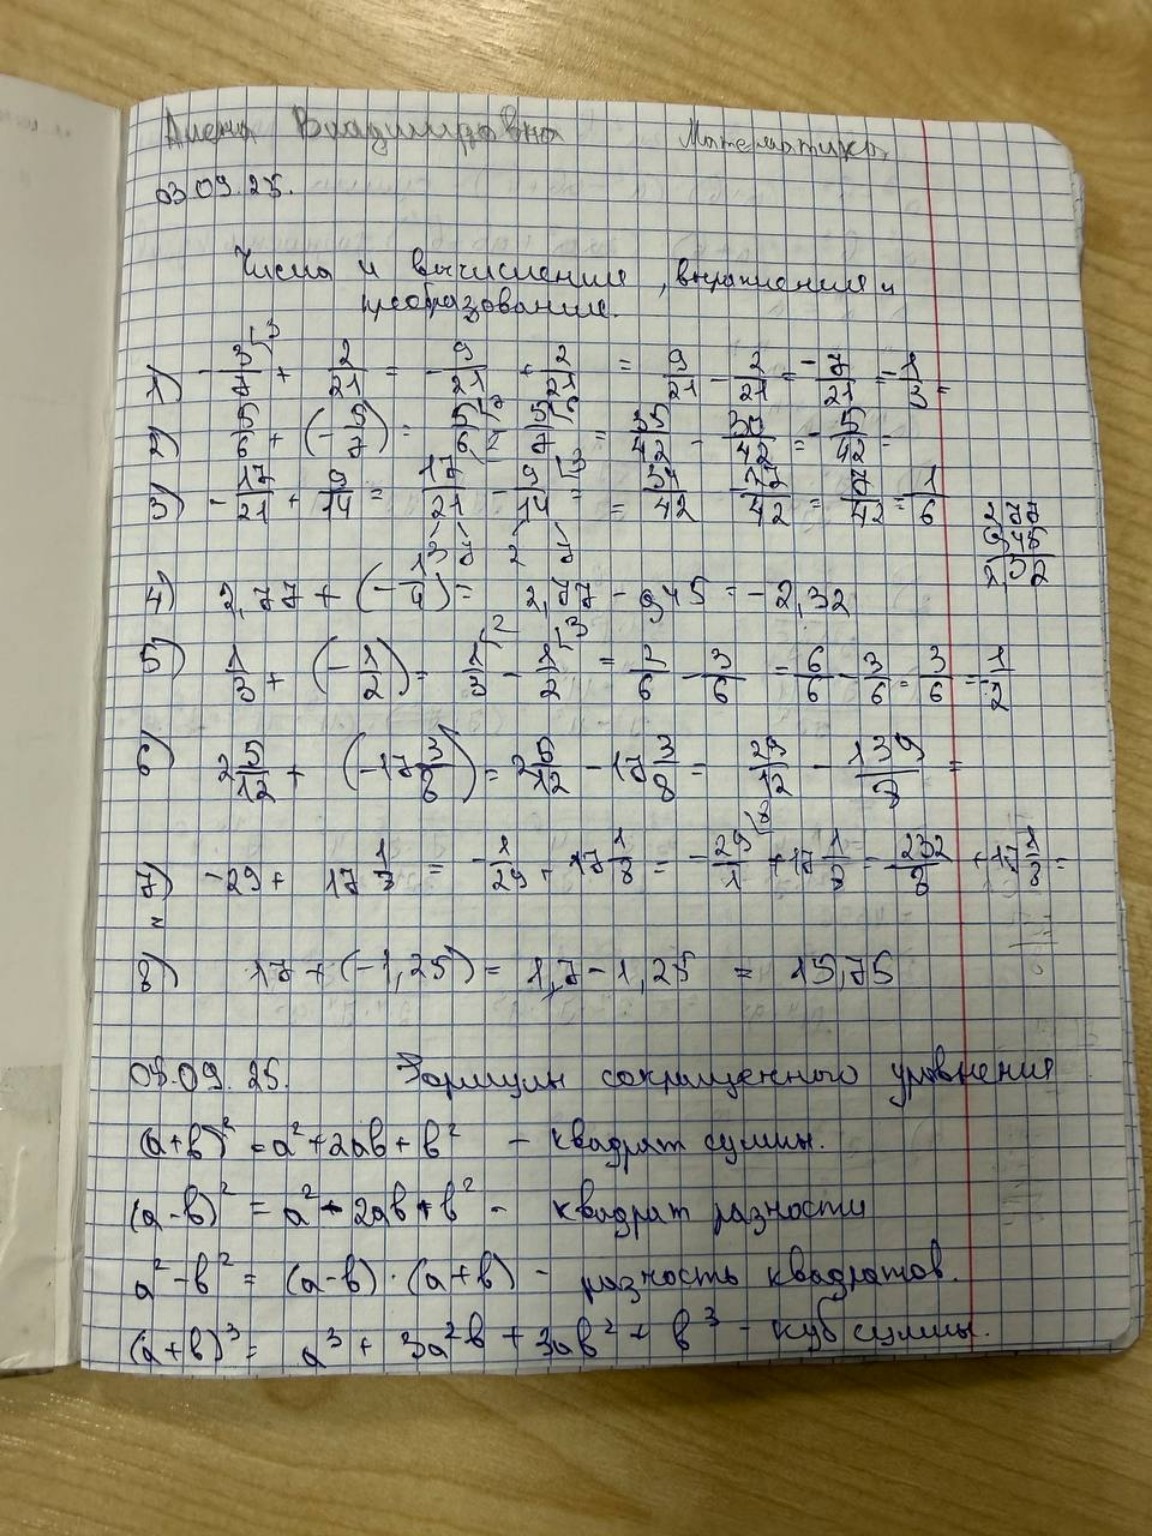 Алена Владимировна Математика
03.09.25.
Числа и вычисления, выражения и
преобразование.
1) -3/7 ⌊3 + 2/21 = -9/21 + 2/21 = 9/21 - 2/21 = -7/21 = -1/3 =
2) 5/6 + (-5/7) = 5/6 ⌊7 - 5/7 ⌊6 = 35/42 - 30/42 = -5/42 =
3) -17/21 + 9/14 = 17/21 - 9/14 ⌊3 = = 34/42 - 27/42 = 7/42 = 1/6
3 7 2 7
2,77
0,45
2,32
4) 2,77 + (-1/4) = 2,77 - 0,45 = -2,32
5) 1/3 + (-1/2) = 1/3 ⌊2 - 1/2 ⌊3 = 2/6 - 3/6 = 6/6 - 3/6 = 3/6 = 1/2
6) 2 5/12 + (-17 3/8) = 2 5/12 - 17 3/8 = 29/12 - 139/8 =
7) -29 + 17 1/3 = -1/29 + 17 1/8 = -29/1 ⌊8 + 17 1/8 = -232/8 + 17 1/8 =
=
8) 17 + (-1,25) = 1,7 - 1,25 = 15,75
03.09.25. Формулы сокращенного уровнения
(a+b)² = a² + 2ab + b² - квадрат суммы.
(a-b)² = a² - 2ab + b² - квадрат разности
a² - b² = (a-b) · (a+b) - разность квадратов.
(a+b)³ = a³ + 3a²b + 3ab² + b³ - куб суммы.